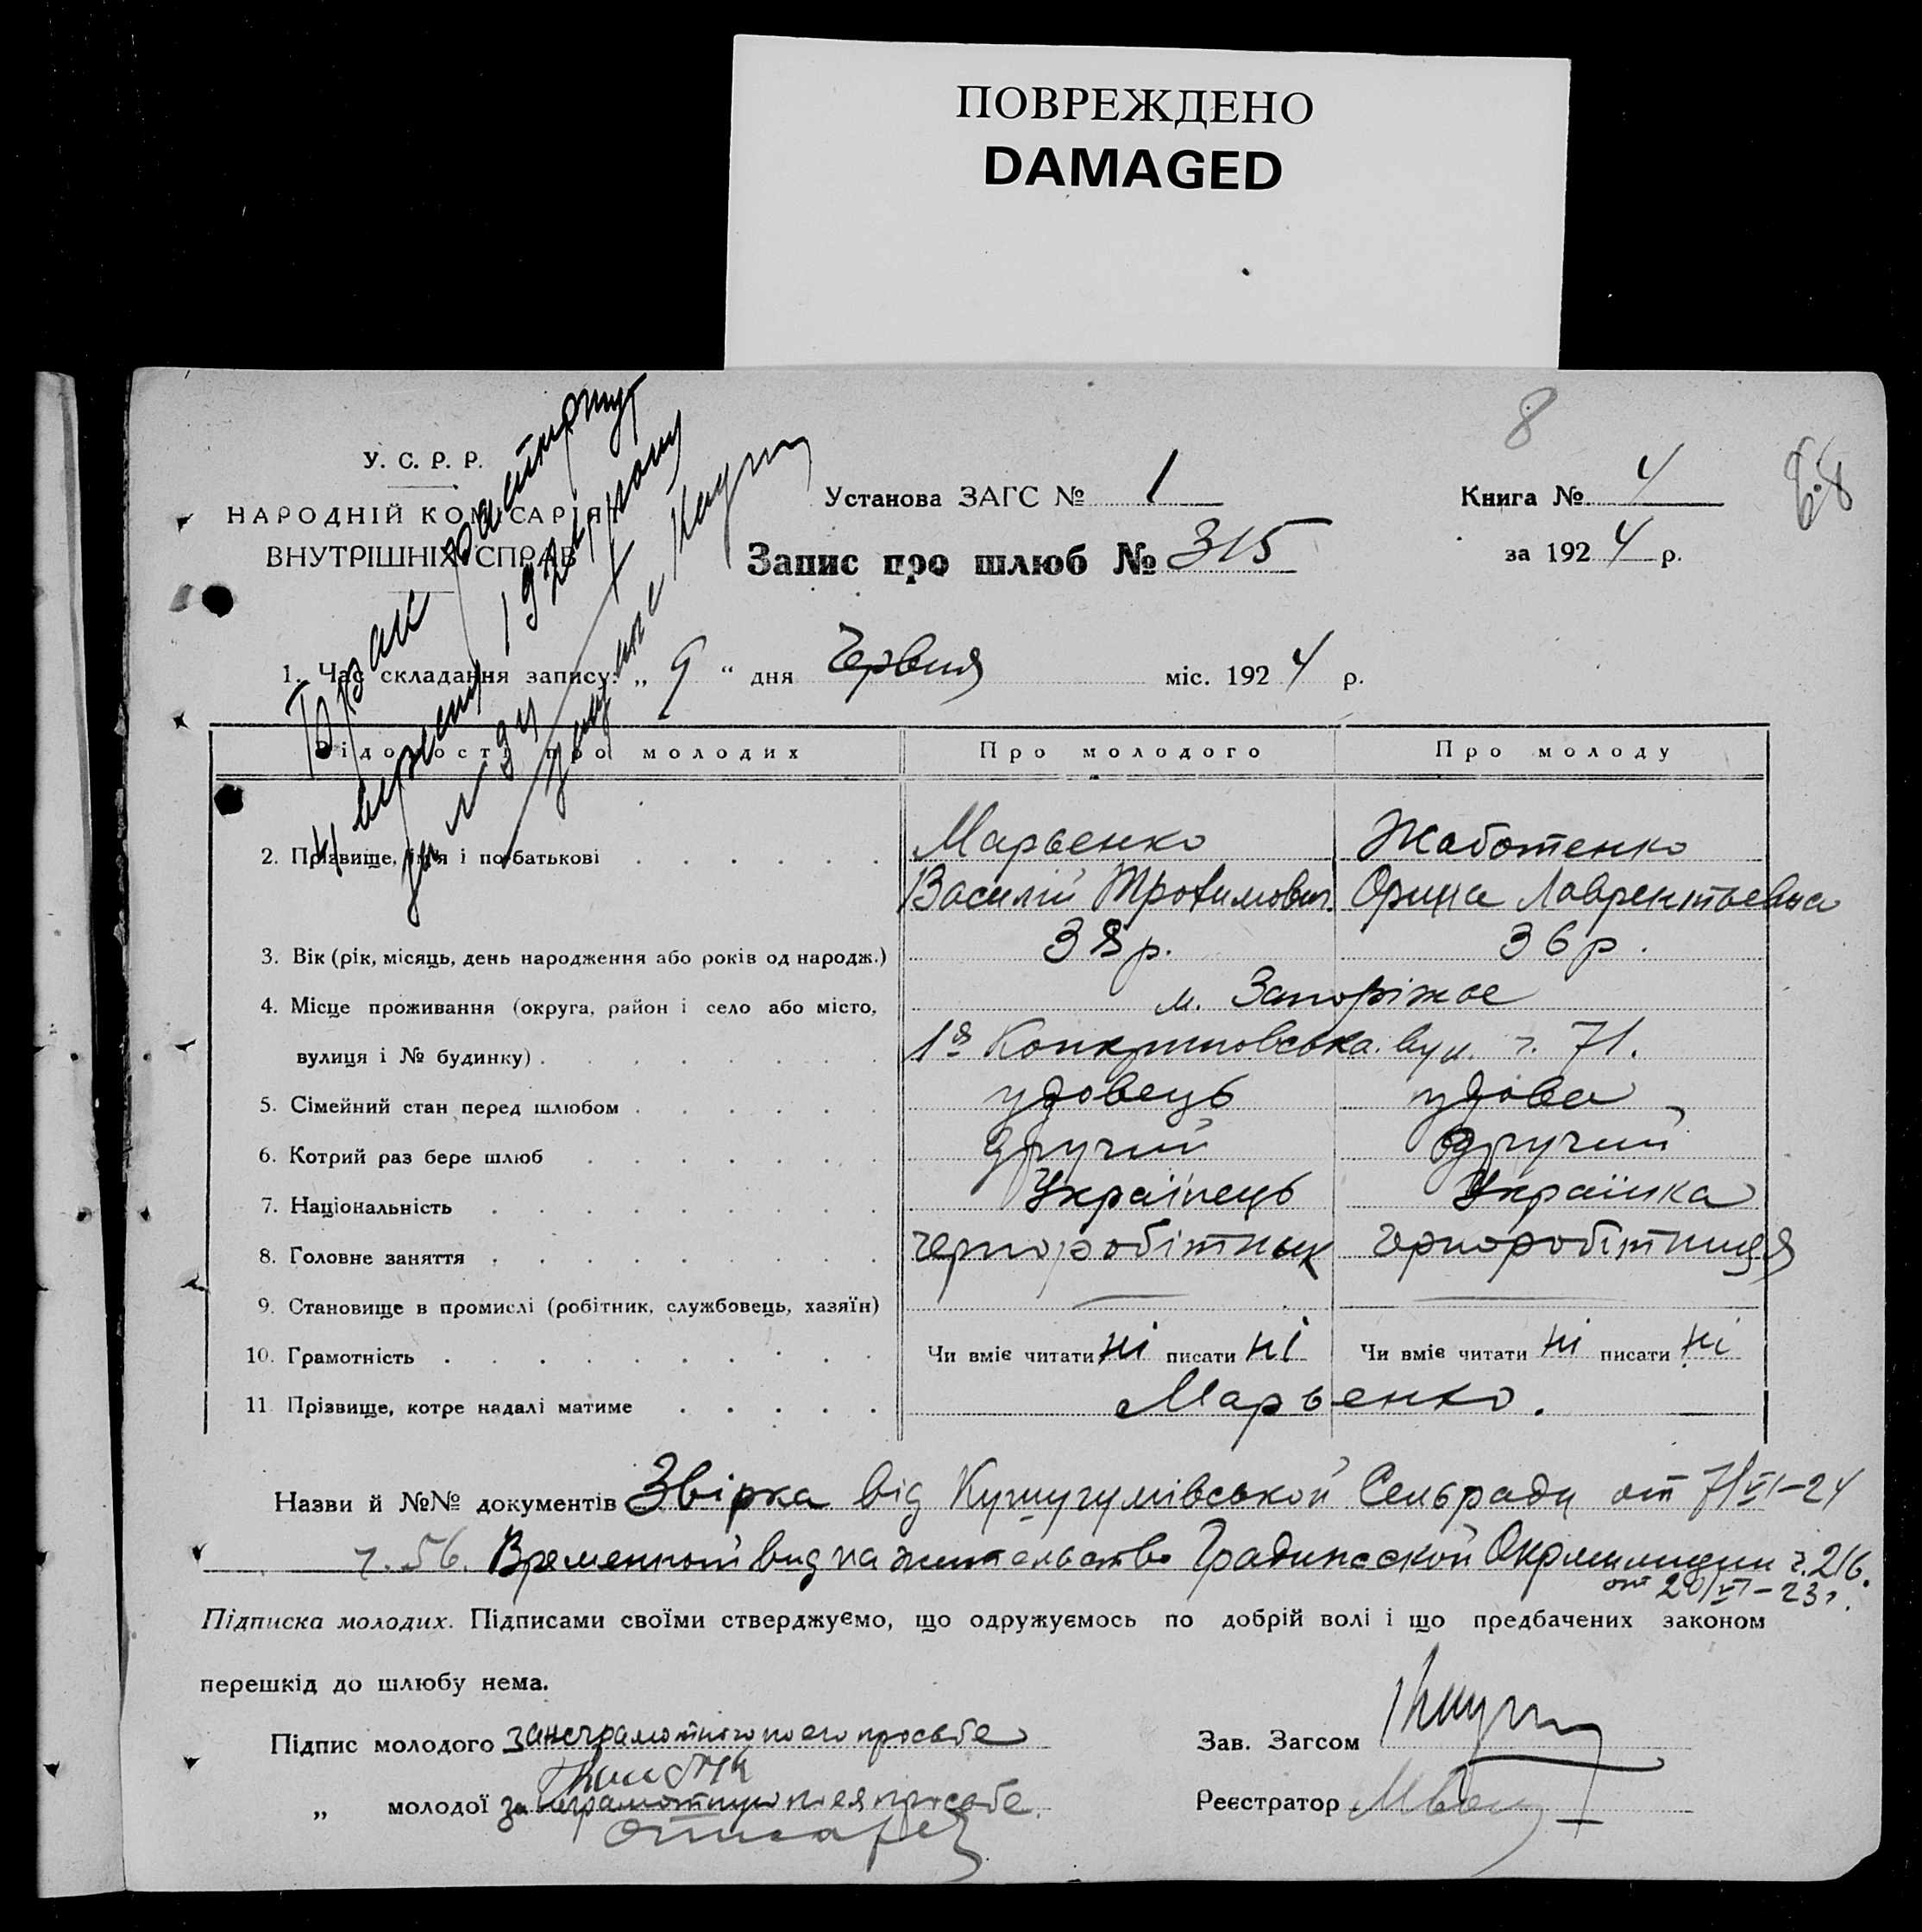 ПОВРЕЖДЕНО
DAMAGED
8
У. С. Р. Р.
НАРОДНІЙ КОМІСАРІЯТ
ВНУТРІШНІХ СПРАВ
Брак расторгнут
1924
Установа ЗАГС № 1
Книга № 4
за 1924 р.
Запис про шлюб № 315
1. Час складання запису: „ 9 “ дня Червня міс. 1924 р.
Відомості про молодих Про молодого Про молоду
2. Прізвище, ім'я і по батькові Марьенко Жаботенко
Василій Трофимович. Орина Лаврентьевна
3. Вік (рік, місяць, день народження або років од народж.) 38 р. 36 р.
4. Місце проживання (округа, район і село або місто, м. Запоріжже
вулиця і № будинку) 1я вул. ч. 71.
5. Сімейний стан перед шлюбом удовець удова
6. Котрий раз бере шлюб другий другий
7. Національність Українець Українка
8. Головне заняття черноробітник черноробітниця
9. Становище в промислі (робітник, службовець, хазяїн)
10. Грамотність Чи вміє читати ні писати ні Чи вміє читати ні писати ні
11. Прізвище, котре надалі матиме Марьенко.
Назви й №№ документів Звірка від Кушугумівської Сельради от 7/VI–24
ч. 56. Временной вид на жительство Градижской Окрмилиции ч. 216.
от 20/VI–23 г.
Підписка молодих. Підписами своїми стверджуємо, що одружуємось по добрій волі і що предбачених законом
перешкід до шлюбу нема.
Підпис молодого за неграмотного по его просьбе
Зав. Загсом
„ молодої за неграмотную по ея просьбе.
Реєстратор